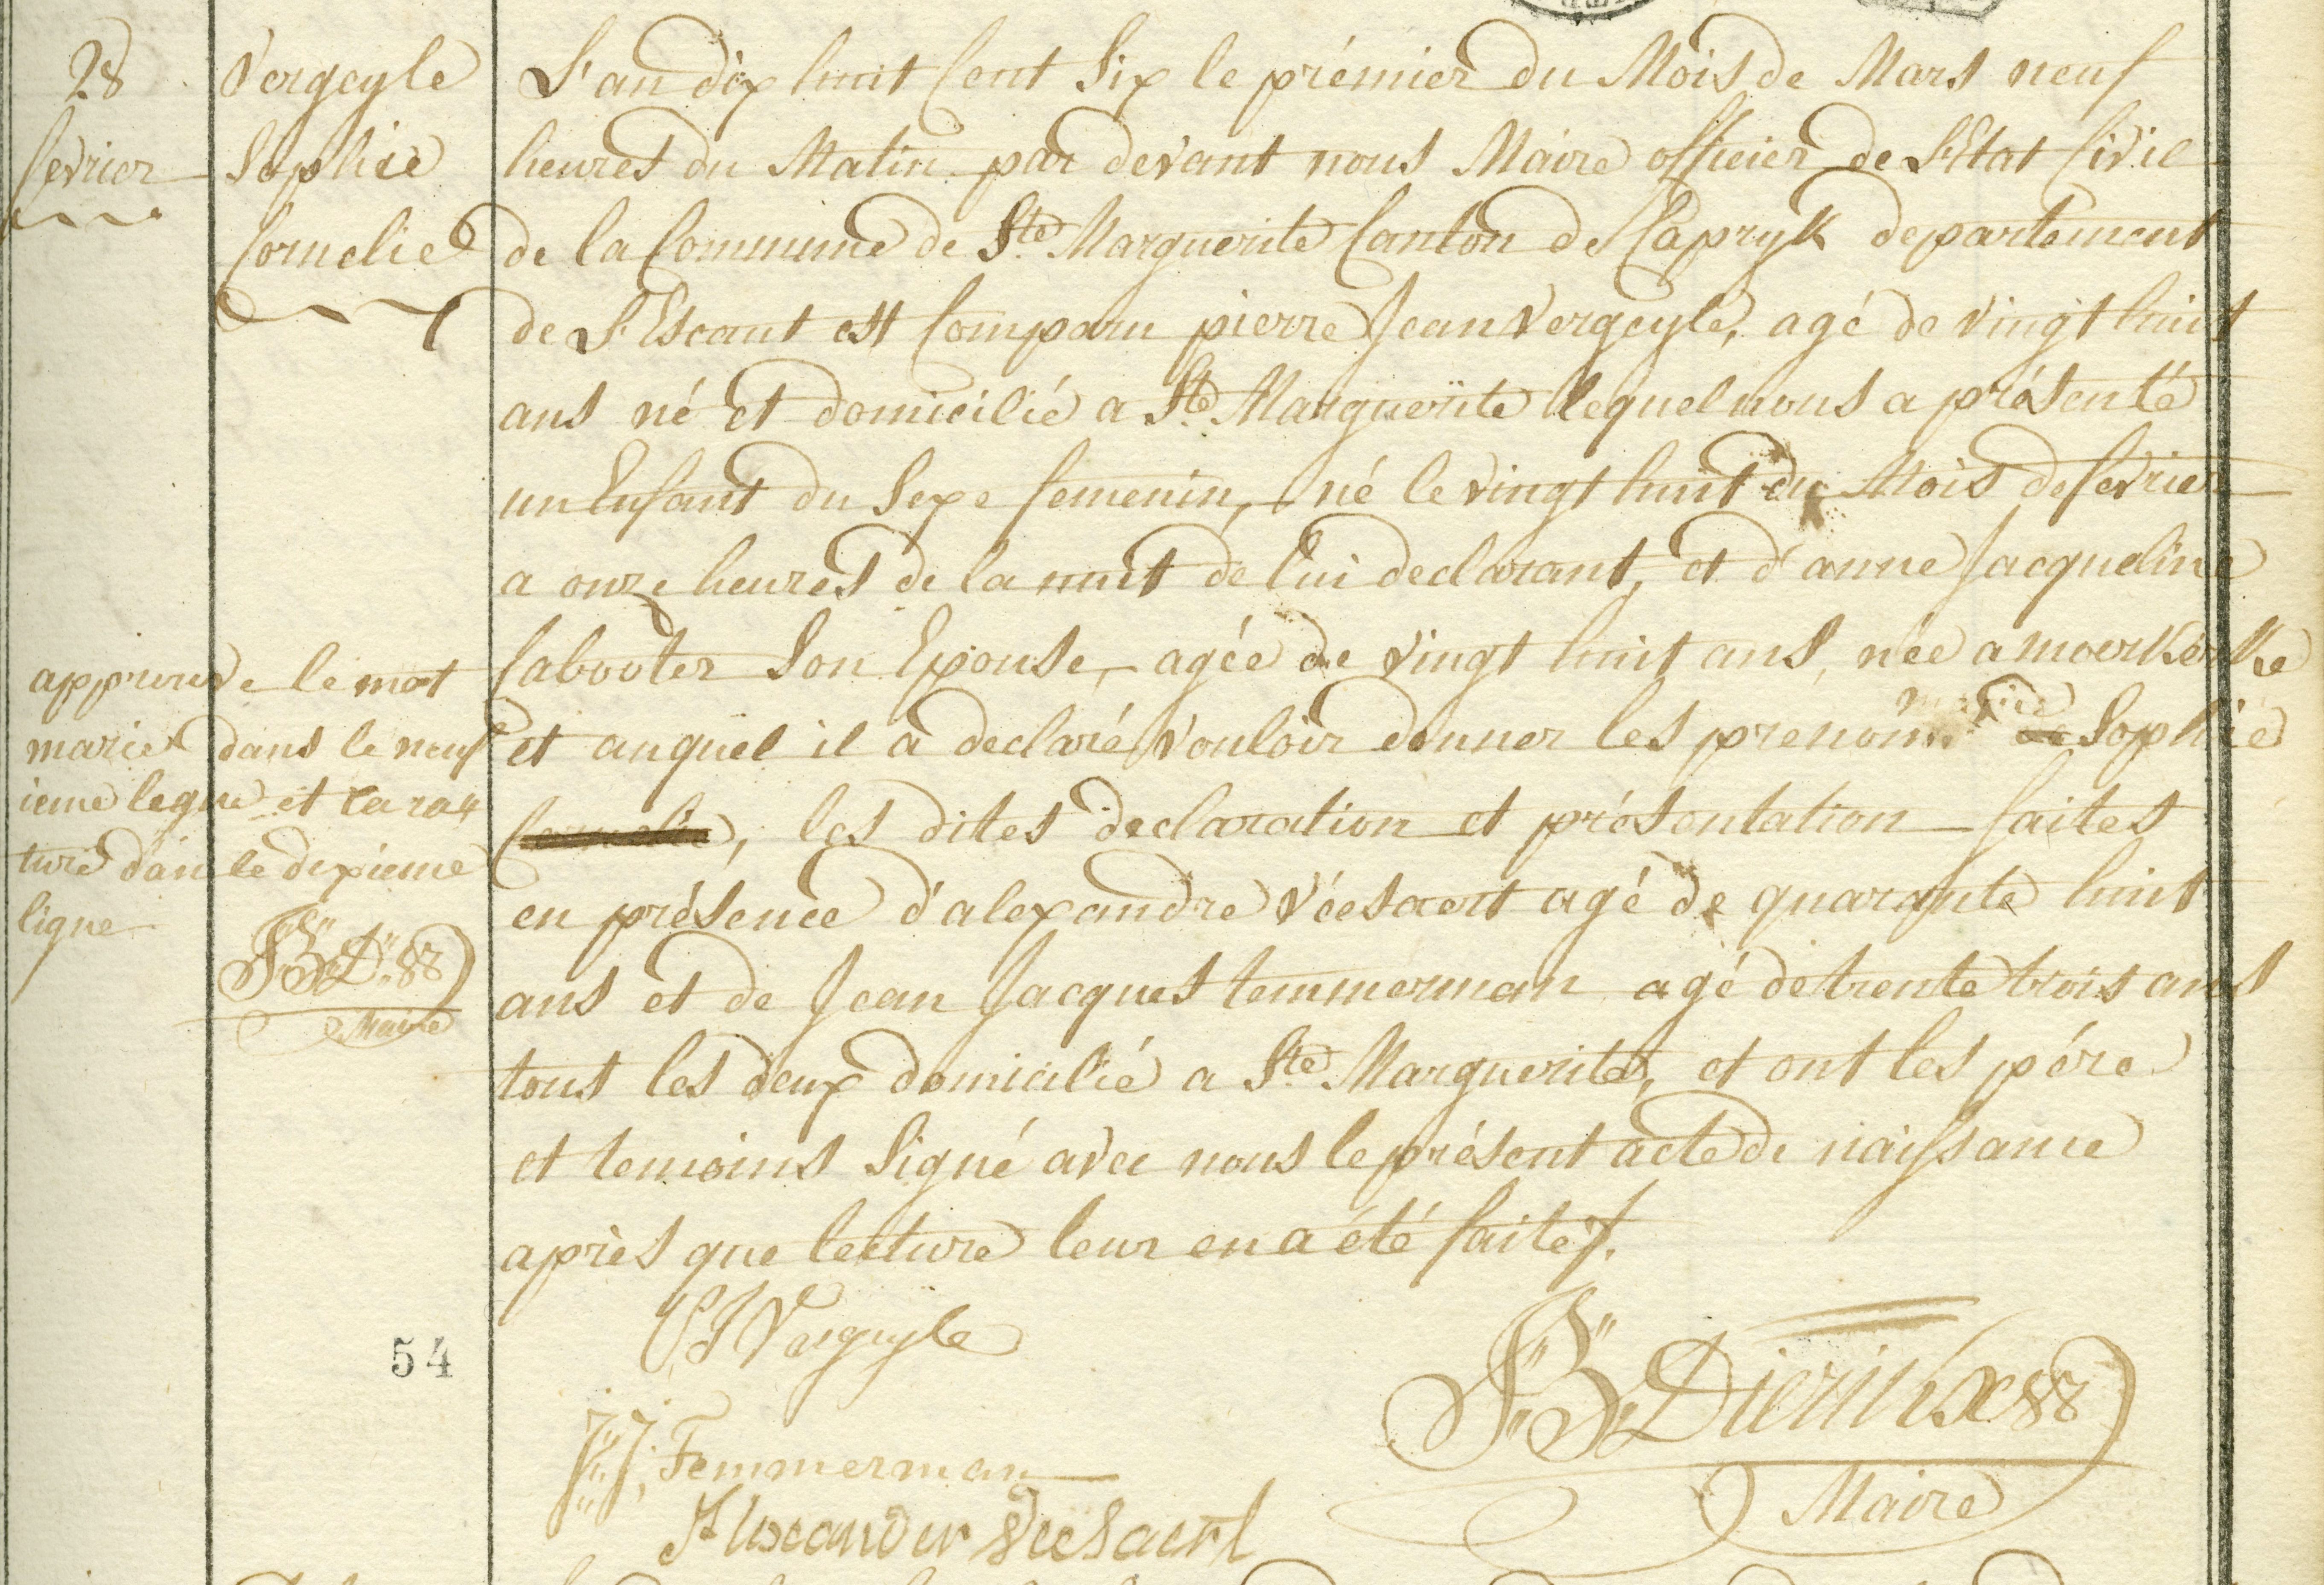 28
fevrier
Vergeyle
Sophie
Cornelie
L'an dix huit Cent Six le prémier du Mois de Mars neuf
heures du Matin par devant nous Maire officier de L'Etat Civil
de la Commune de Ste Marguerite Canton de Capryk departement
de L'Escaut est Comparu pierre Jean Vergeyle, agé de vingt huit
ans né et domicilié a Ste Marguerite lequel nous a présenté
un Enfant du Sexe femenin, né le vingt huit du Mois de fevrier
a onze heures de la nuit de lui declarant, et d'anne Jacqueline
Sabooter Son Epouse, agée de vingt huit ans, née a moerkerke
et auquel il a declaré vouloir donner les prenoms marie Sophie
Cornelie, les dites declaration et présentation faites
en présence d'alexandre véesaert agé de quarante huit
ans et de Jean Jacques temmerman agé de trente trois ans
tous les deux domicilié a Ste Marguerite, et ont les pére
et temoins Signé avec nous le présent acte de naissance
après que lecture leur en a été faite.
approuve le mot
marie dans le neuf
ieme legne et la ra
ture dans le dixieme
ligne
J B D
Maire
54
PJ Vergeyle
J J Temmerman
Alexander Veesaert
J B Dierickx
Maire